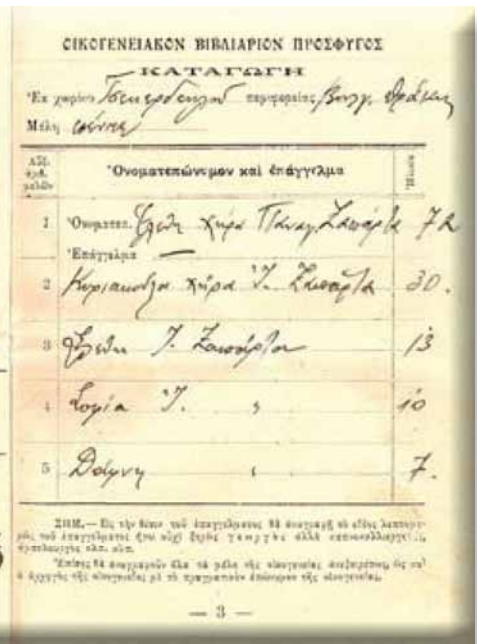 ΟΙΚΟΓΕΝΕΙΑΚΟΝ ΒΙΒΛΙΑΡΙΟΝ ΠΡΟΣΦΥΓΟΣ
ΚΑΤΑΓΩΓΗ
Ἐκ χωρίου περιφερείας Βουλγ. Θράκης
Μέλη πέντε
Αὔξ. ἀριθ. μελῶν Ὀνοματεπώνυμον καὶ ἐπάγγελμα Ἡλικία
1 Ὀνοματεπ. χήρα Παναγ. Ζαπάρτα 72
Ἐπάγγελμα —
2 Κυριακούλα χήρα Ἰ. Ζαπάρτα 30.
3 Ἰ. Ζαπάρτα 13
4 Σοφία Ἰ. " 10
5 Δάφνη " 7.
ΣΗΜ.— Εἰς τὴν θέσιν τοῦ ἐπαγγέλματος θὰ ἀναγραφῇ τὸ εἶδος λεπτομε-
ρῶς τοῦ ἐπαγγέλματος ἤτοι οὐχὶ ξηρῶς γεωργὸς ἀλλὰ καπνοκαλλιεργητὴς,
ἀμπελουργὸς κλπ. κλπ.
Ἐπίσης θὰ ἀναγραφοῦν ὅλα τὰ μέλη τῆς οἰκογενείας ἀνεξαιρέτως, ὡς καὶ
ὁ ἀρχηγὸς τῆς οἰκογενείας μὲ τὸ πραγματικὸν ἐπώνυμον τῆς οἰκογενείας.
— 3 —